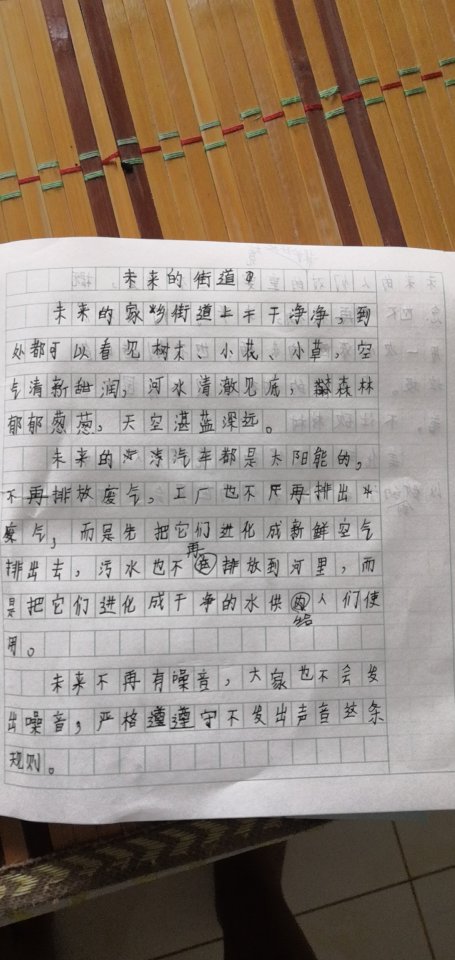 未来的街道
未来的家乡街道上干干净净，到
处都可以看见树木、小花、小草，空
气清新甜润，河水清澈见底，森林
郁郁葱葱，天空湛蓝深远。
未来的汽车都是太阳能的，
不再排放废气，工厂也不再排出
废气，而是先把它们进化成新鲜空气
排出去，污水也不再排放到河里，而
是把它们进化成干净的水供给人们使
用。
未来不再有噪音，大家也不会发
出噪音，严格遵守不发出声音这条
规则。